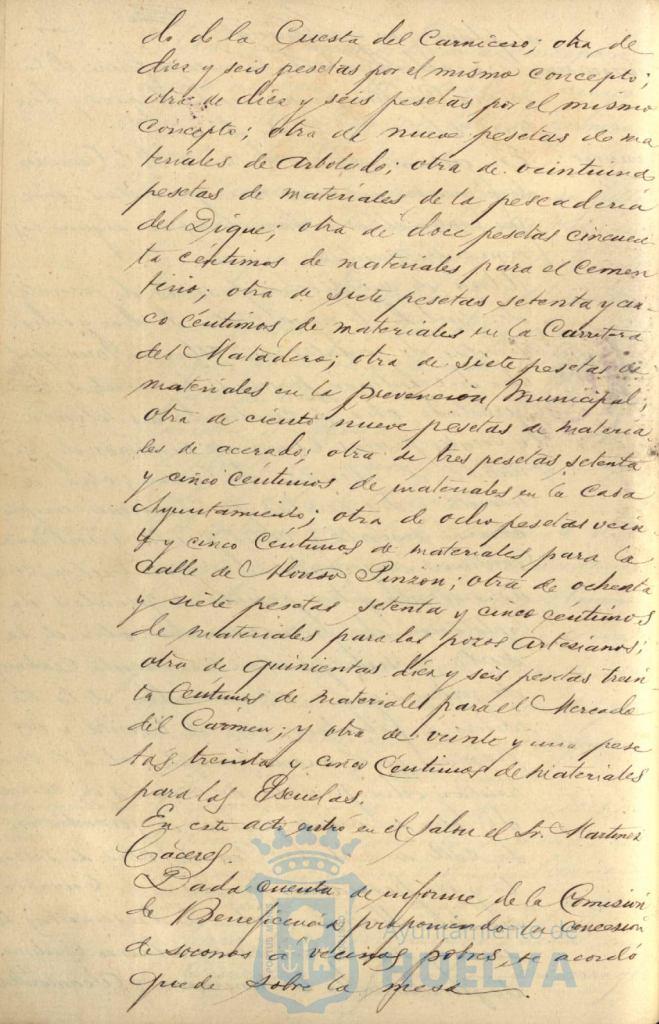 do de la Cuesta del Carnicero; otra de
diez y seis pesetas por el mismo concepto;
otra de diez y seis pesetas por el mismo
concepto; otra de nueve pesetas de ma
teriales de Arbolado; otra de veintiuna
pesetas de materiales de la pescaderia
del Dique; otra de doce pesetas cincuen
ta céntimos de materiales para el Cemen
terio; otra de siete pesetas setenta y cin-
co céntimos de materiales en la Carretera
del Matadero; otra de siete pesetas de
materiales en la prevencion Municipal;
otra de ciento nueve pesetas de materia
les de acerado; otra de tres pesetas setenta
y cinco céntimos de materiales en la Casa
Ayuntamiento; otra de ocho pesetas vein
te y cinco céntimos de materiales para la
Calle de Alonso Pinzon; otra de ochenta
y siete pesetas setenta y cinco centimos
de materiales para los pozos Artesianos;
otra de quinientas diez y seis pesetas trein
ta céntimos de materiales para el Mercado
del Carmen; y otra de veinte y una pese
tas treinta y cinco centimos de materiales
para las Escuelas.
En este acto entró en el Salon el Sr. Martinez
Cáceres.
Dada cuenta de informe de la Comisión
de Beneficencia proponiendo la concesion
de socorros á vecinos pobres, se acordó
quede sobre la mesa.
Ayuntamiento de
HUELVA